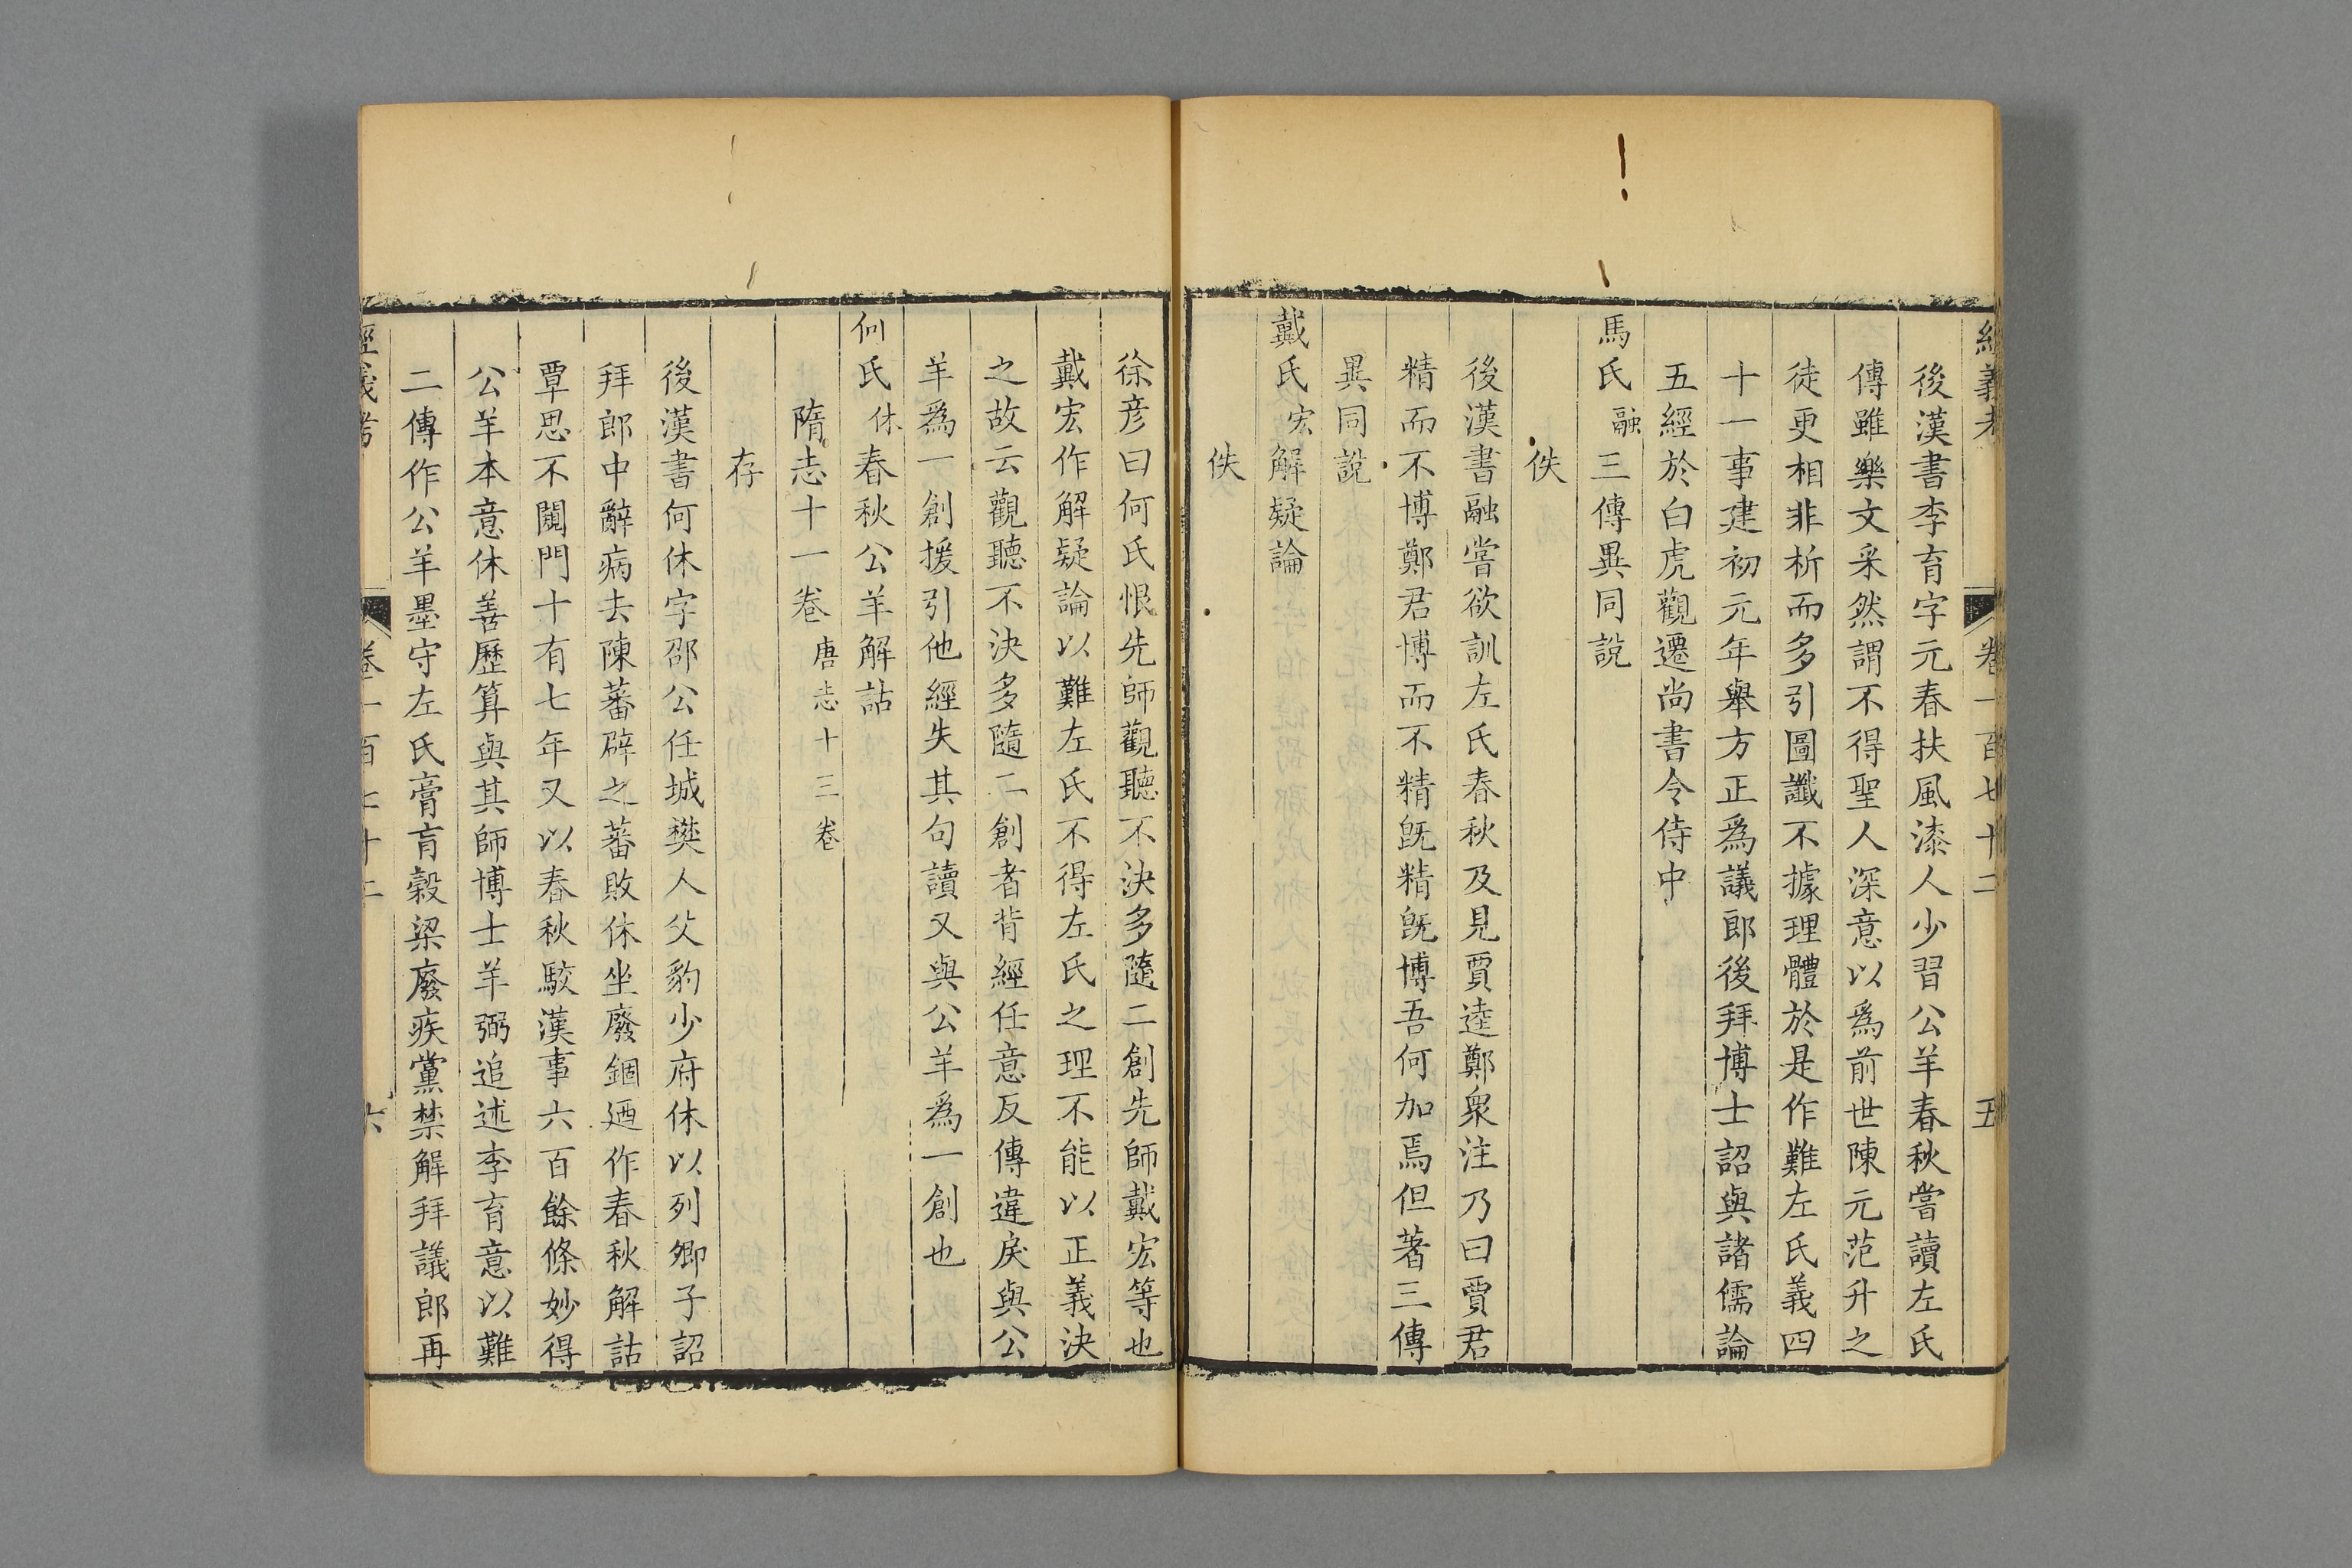 經義考 卷一百七十二 五
後漢書李育字元春扶風漆人少習公羊春秋嘗讀左氏
傳雖樂文采然謂不得聖人深意以爲前世陳元范升之
徒更相非析而多引圖讖不據理體於是作難左氏義四
十一事建初元年舉方正爲議郎後拜博士詔與諸儒論
五經於白虎觀遷尚書令侍中
馬氏融三傳異同說
佚
後漢書融嘗欲訓左氏春秋及見賈逵鄭衆注乃曰賈君
精而不博鄭君博而不精旣精旣博吾何加焉但著三傳
異同說
戴氏宏解疑論
佚
徐彦曰何氏恨先師觀聽不決多隨二創先師戴宏等也
戴宏作解疑論以難左氏不得左氏之理不能以正義決
之故云觀聽不決多隨二創者背經任意反傳違戾與公
羊爲一創援引他經失其句讀又與公羊爲一創也
何氏休春秋公羊解詁
隋志十一卷唐志十三卷
存
後漢書何休字邵公任城樊人父豹少府休以列卿子詔
拜郎中辭病去陳蕃辟之蕃敗休坐廢錮迺作春秋解詁
覃思不闚門十有七年又以春秋駮漢事六百餘條妙得
公羊本意休善歷算與其師博士羊弼追述李育意以難
二傳作公羊墨守左氏膏肓穀梁廢疾黨禁解拜議郎再
經義考 卷一百七十二 六